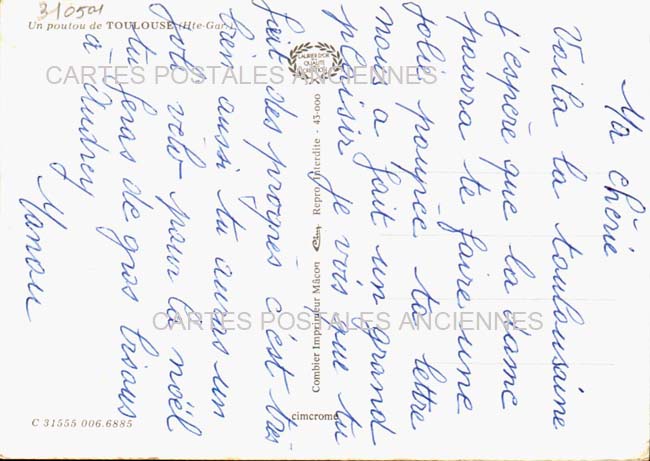 31050n
Un poutou de TOULOUSE (Hte-Gar.)
LAURIER D'OR
DE
QUALITÉ
CARTES POSTALES ANCIENNES
Ma chérie
Voila la toulousaine
j'espère que la dame
pourra te faire une
jolie poupée ta lettre
nous a fait un grand
plaisir je vois que tu
fait des progrès c'est très
bien aussi tu auras un
joli vélo pour la noël
tu feras de gros bisous
à Audrey
Manou
Combier Imprimeur Mâcon cim Repro. Interdite - 43-000
CARTES POSTALES ANCIENNES
cimcrome
C 31555 006.6885